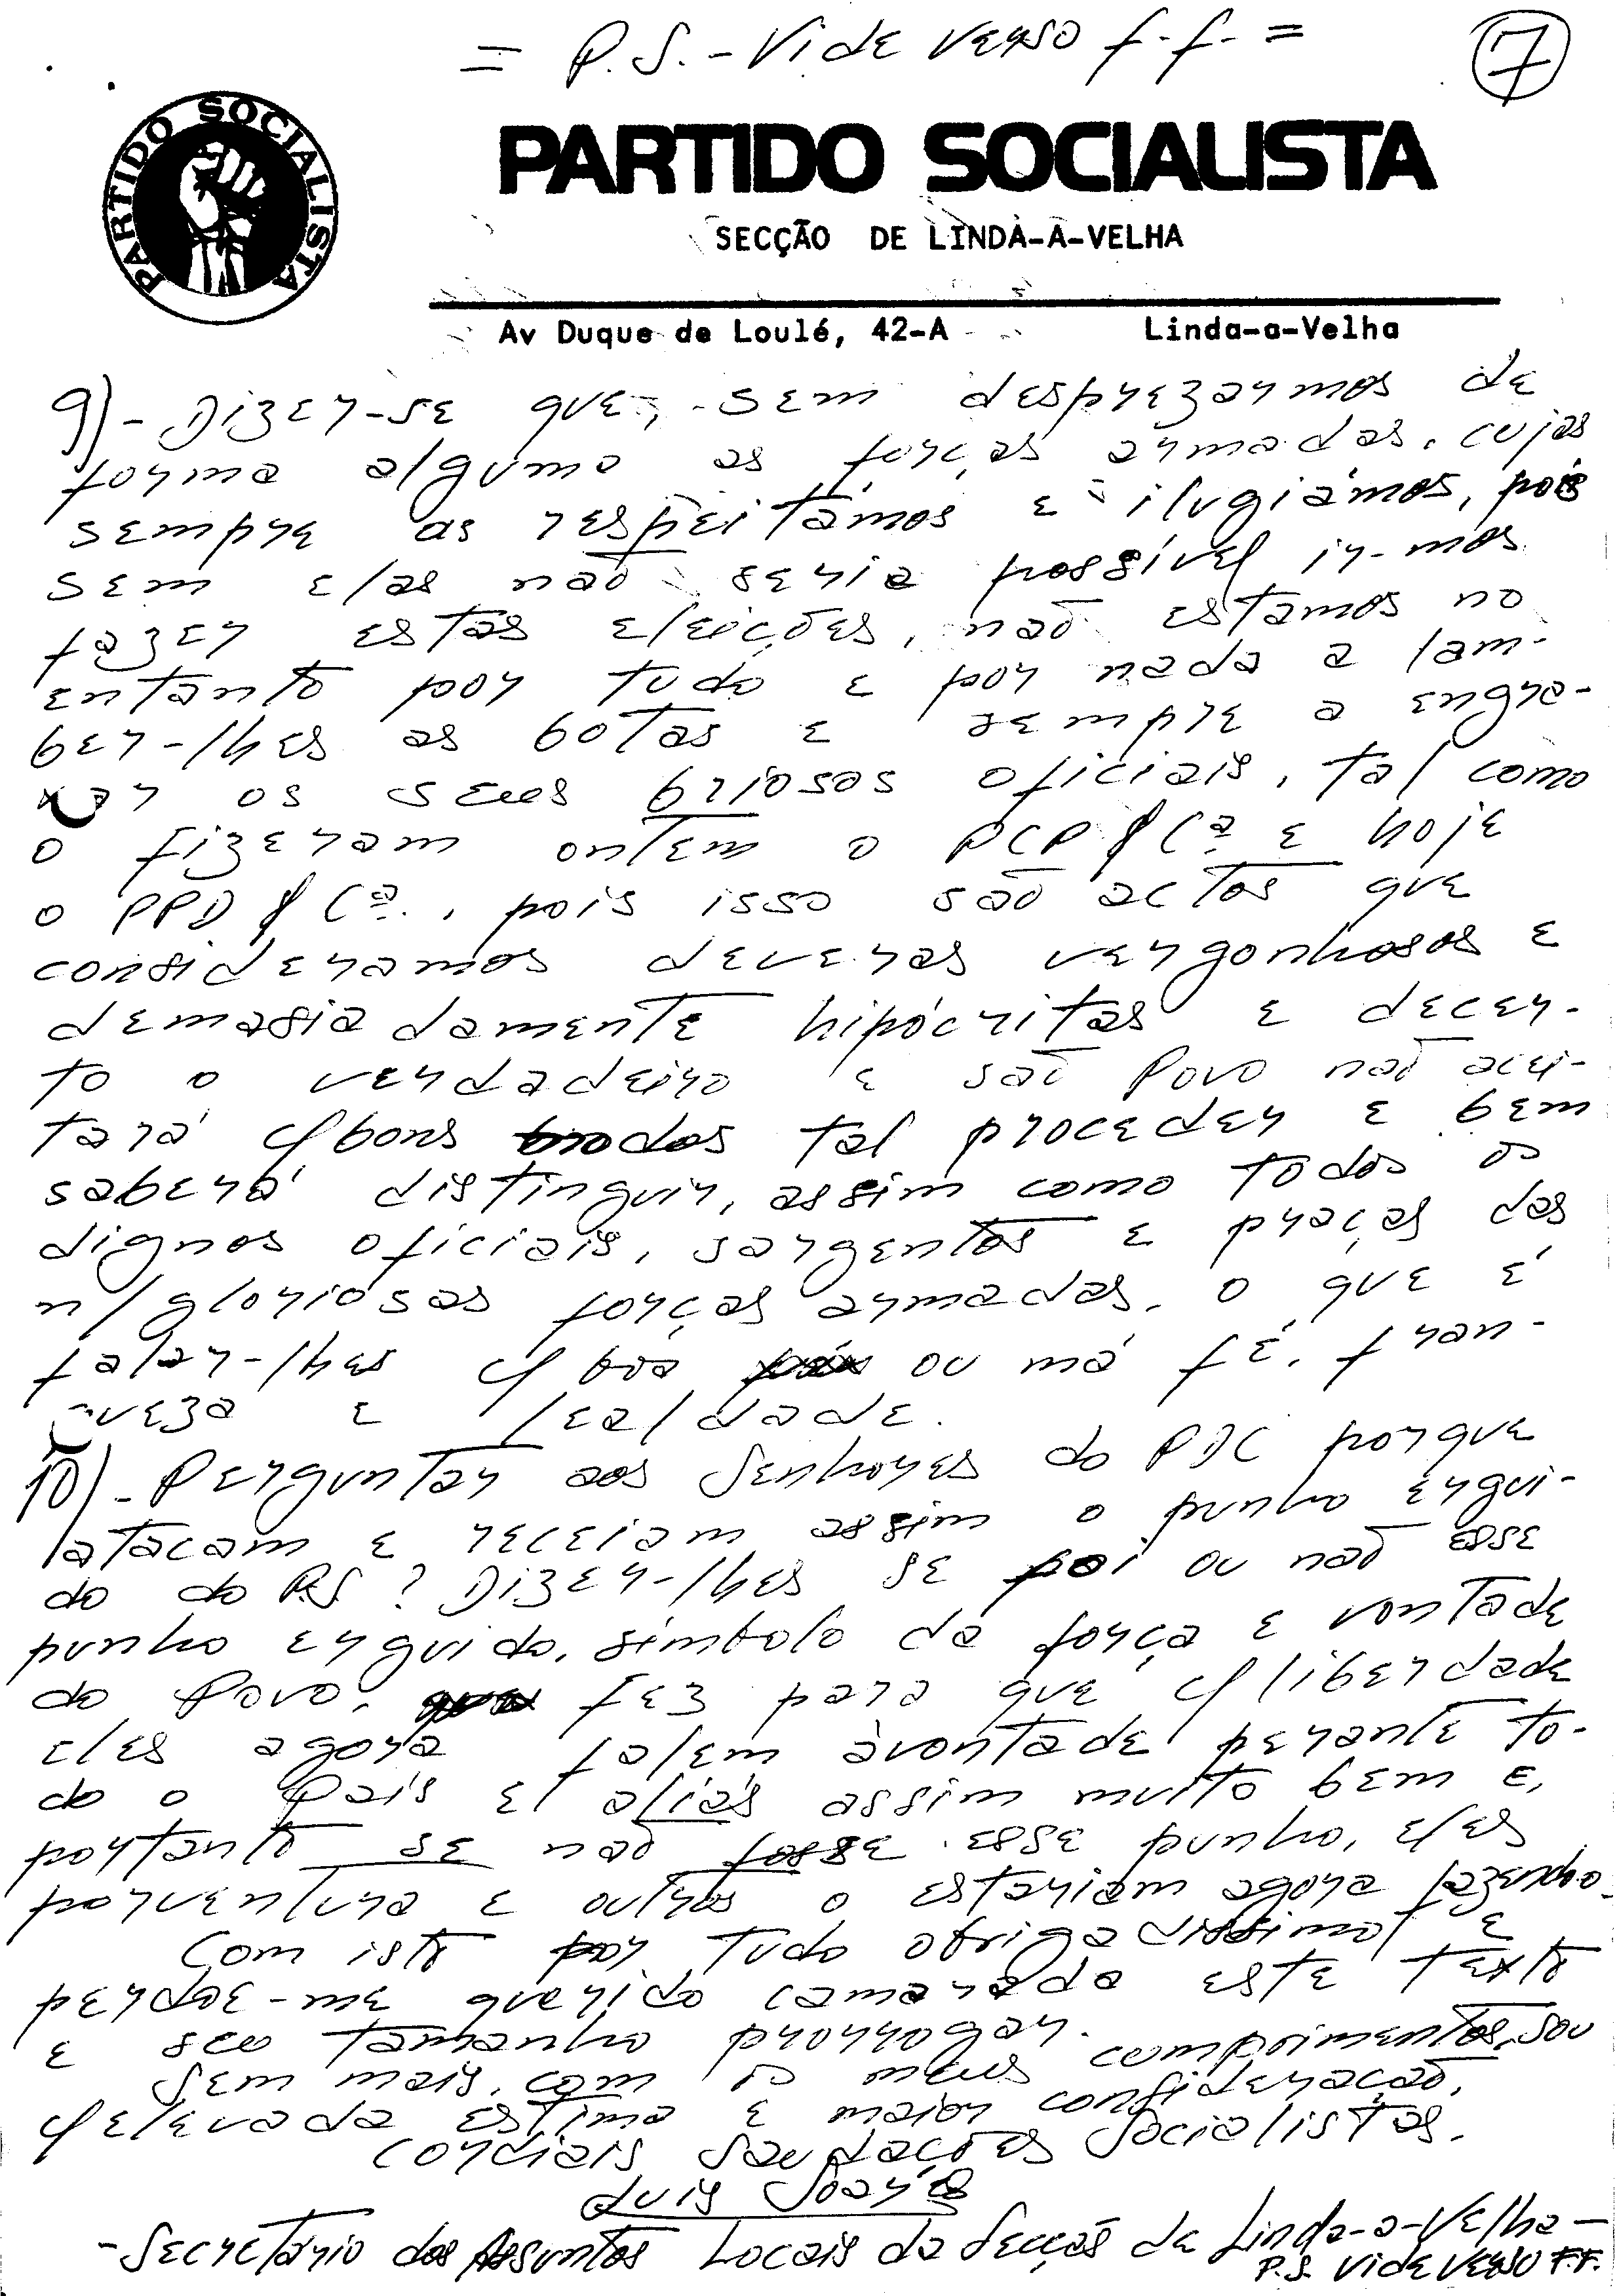 = P.S. - Vide verso f.f. =
7
PARTIDO SOCIALISTA
PARTIDO SOCIALISTA
SECÇÃO DE LINDA-A-VELHA
Av Duque de Loulé, 42-A Linda-a-Velha
9) - Dizer-se que, sem desprezarmos de
forma alguma as forças armadas, cujas
sempre as respeitámos e ilugiámos, pois
sem elas não seria possível ir-mos
fazer estas eleições, não estamos no
entanto por tudo e por nada a lam-
ber-lhes as botas e sempre a engra-
xar os seus briosos oficiais, tal como
o fizeram ontem o PCP & Cª e hoje
o PPD & Cª., pois isso são actos que
consideramos deveras vergonhosos e
demasiadamente hipócritas e decer-
to o verdadeiro e são Povo não acei-
tará c/ bons modos tal proceder e bem
saberá distinguir, assim como todos os
dignos oficiais, sargentos e praças das
n/ gloriosas forças armadas, o que é
falar-lhes c/ boa ou má fé, fran-
queza e lealdade.
10) - Perguntar aos Senhores do PDC porque
atacam e receiam assim o punho ergui-
do do P.S? Dizer-lhes se foi ou não esse
punho erguido, símbolo da força e vontade
do Povo, fez para que c/ liberdade
eles agora falem àvontade perante to-
do o País e aliás assim muito bem e,
portanto se não fosse esse punho, eles
porventura e outros o estariam agora fazendo.
Com isto por tudo obrigadissimo e
perdoe-me querido camarada este texto
e seu tamanho prorrogar.
Sem mais, com os meus comprimentos, sou
c/ elevada estima e maior consideração,
Cordiais Saudações Socialistas.
Luis Soares
- Secretário dos Assuntos Locais da Secção de Linda-a-Velha -
P.S. Vide verso F.F.